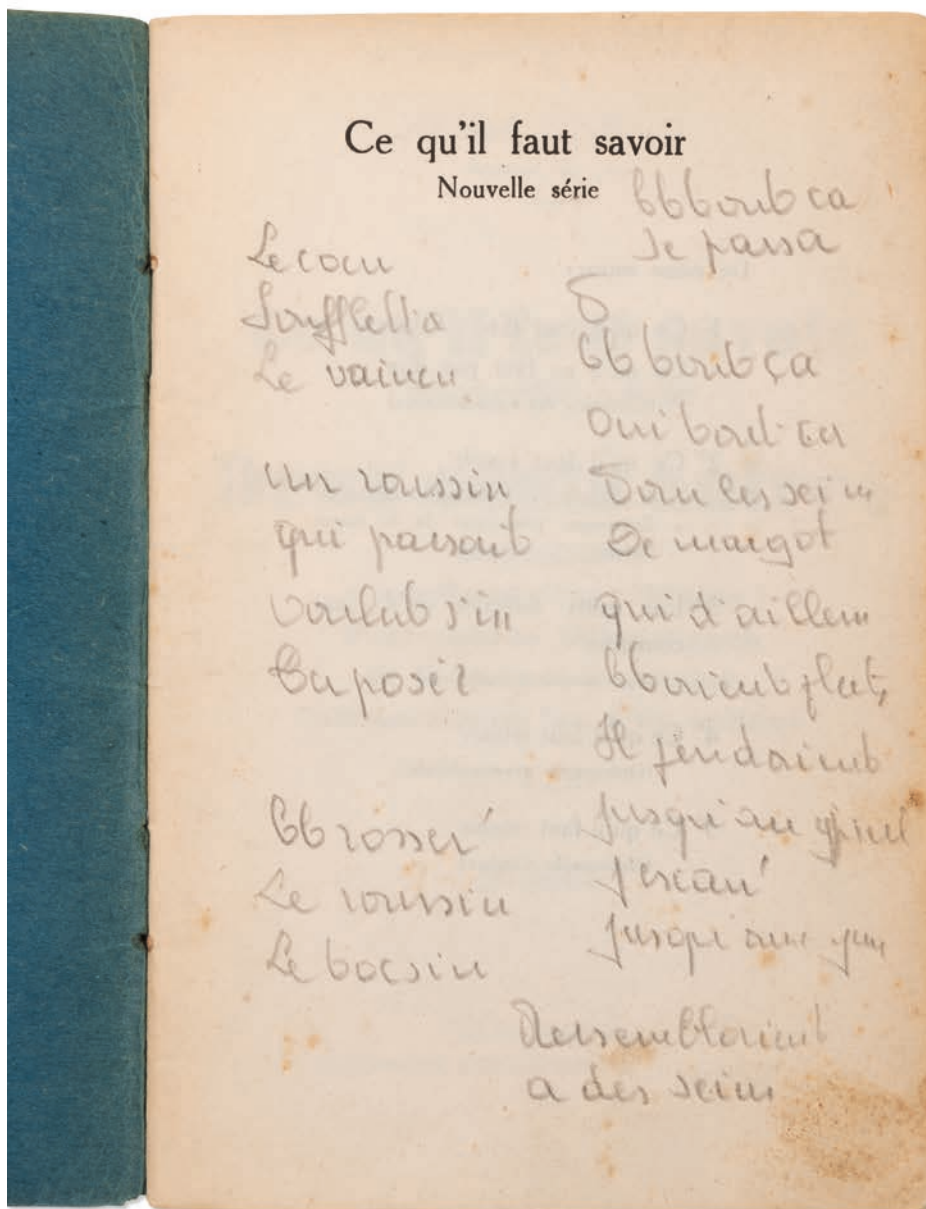 Ce qu'il faut savoir
Nouvelle série
Le cocu
Souffleta
Le vaincu
un roussin
qui passait
voulut s'in
terposer
et rosser
Le roussin
Le bocsin
Et tout ça
se passa
D
Et tout ça
oui tout ça
Pour les seins
De margot
qui d'ailleurs
Etaient
Il pendaient
jusqu'au
jusqu'aux
Ressemblaient
a des seins